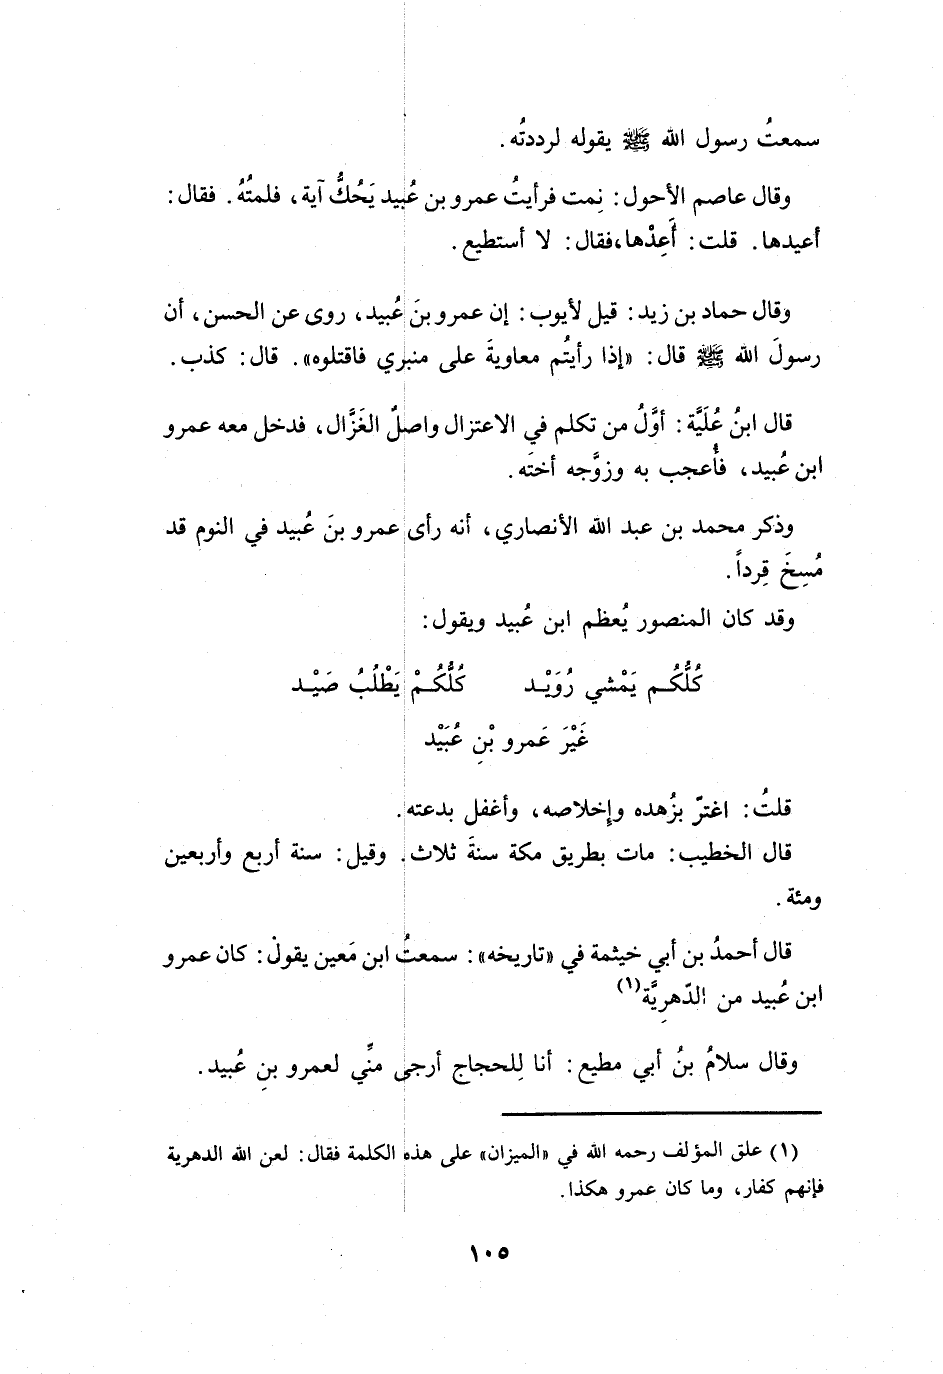 سمعتُ رسول الله ﷺ يقوله لرددتُه.
وقال عاصم الأحول: نِمت فرأيتُ عمرو بن عُبيد يَحُكُّ آية، فلمتُهُ. فقال:
أعيدها. قلت: أَعِدْها، فقال: لا أستطيع.
وقال حماد بن زيد: قيل لأيوب: إن عمرو بنَ عُبيد، روى عن الحسن، أن
رسولَ الله ﷺ قال: «إذا رأيتُم معاويةَ على منبري فاقتلوه». قال: كذب.
قال ابنُ عُلَيَّة: أوَّلُ من تكلم في الاعتزال واصلٌ الغَزَّال، فدخل معه عمرو
ابن عُبيد، فأُعجب به وزوَّجه أختَه.
وذكر محمد بن عبد الله الأنصاري، أنه رأى عمرو بنَ عُبيد في النوم قد
مُسِخَ قِرداً.
وقد كان المنصور يُعظم ابن عُبيد ويقول:
كُلُّكُـم يَمْشي رُوَيْـد كُلُّكُـمْ يَطْلُبُ صَيْـد
غَيْرَ عَمرو بْنِ عُبَيْد
قلتُ: اغترّ بزُهده وإخلاصه، وأغفل بدعته.
قال الخطيب: مات بطريق مكة سنةَ ثلاث. وقيل: سنة أربع وأربعين
ومئة.
قال أحمدُ بن أبي خيثمة في «تاريخه»: سمعتُ ابن مَعين يقول: كان عمرو
ابن عُبيد من الدَّهرِيَّة(١)
وقال سلامُ بنُ أبي مطيع: أنا لِلحجاج أرجى منِّي لعمرو بنِ عُبيد.
(١) علق المؤلف رحمه الله في «الميزان» على هذه الكلمة فقال: لعن الله الدهرية
فإنهم كفار، وما كان عمرو هكذا.
١٠٥